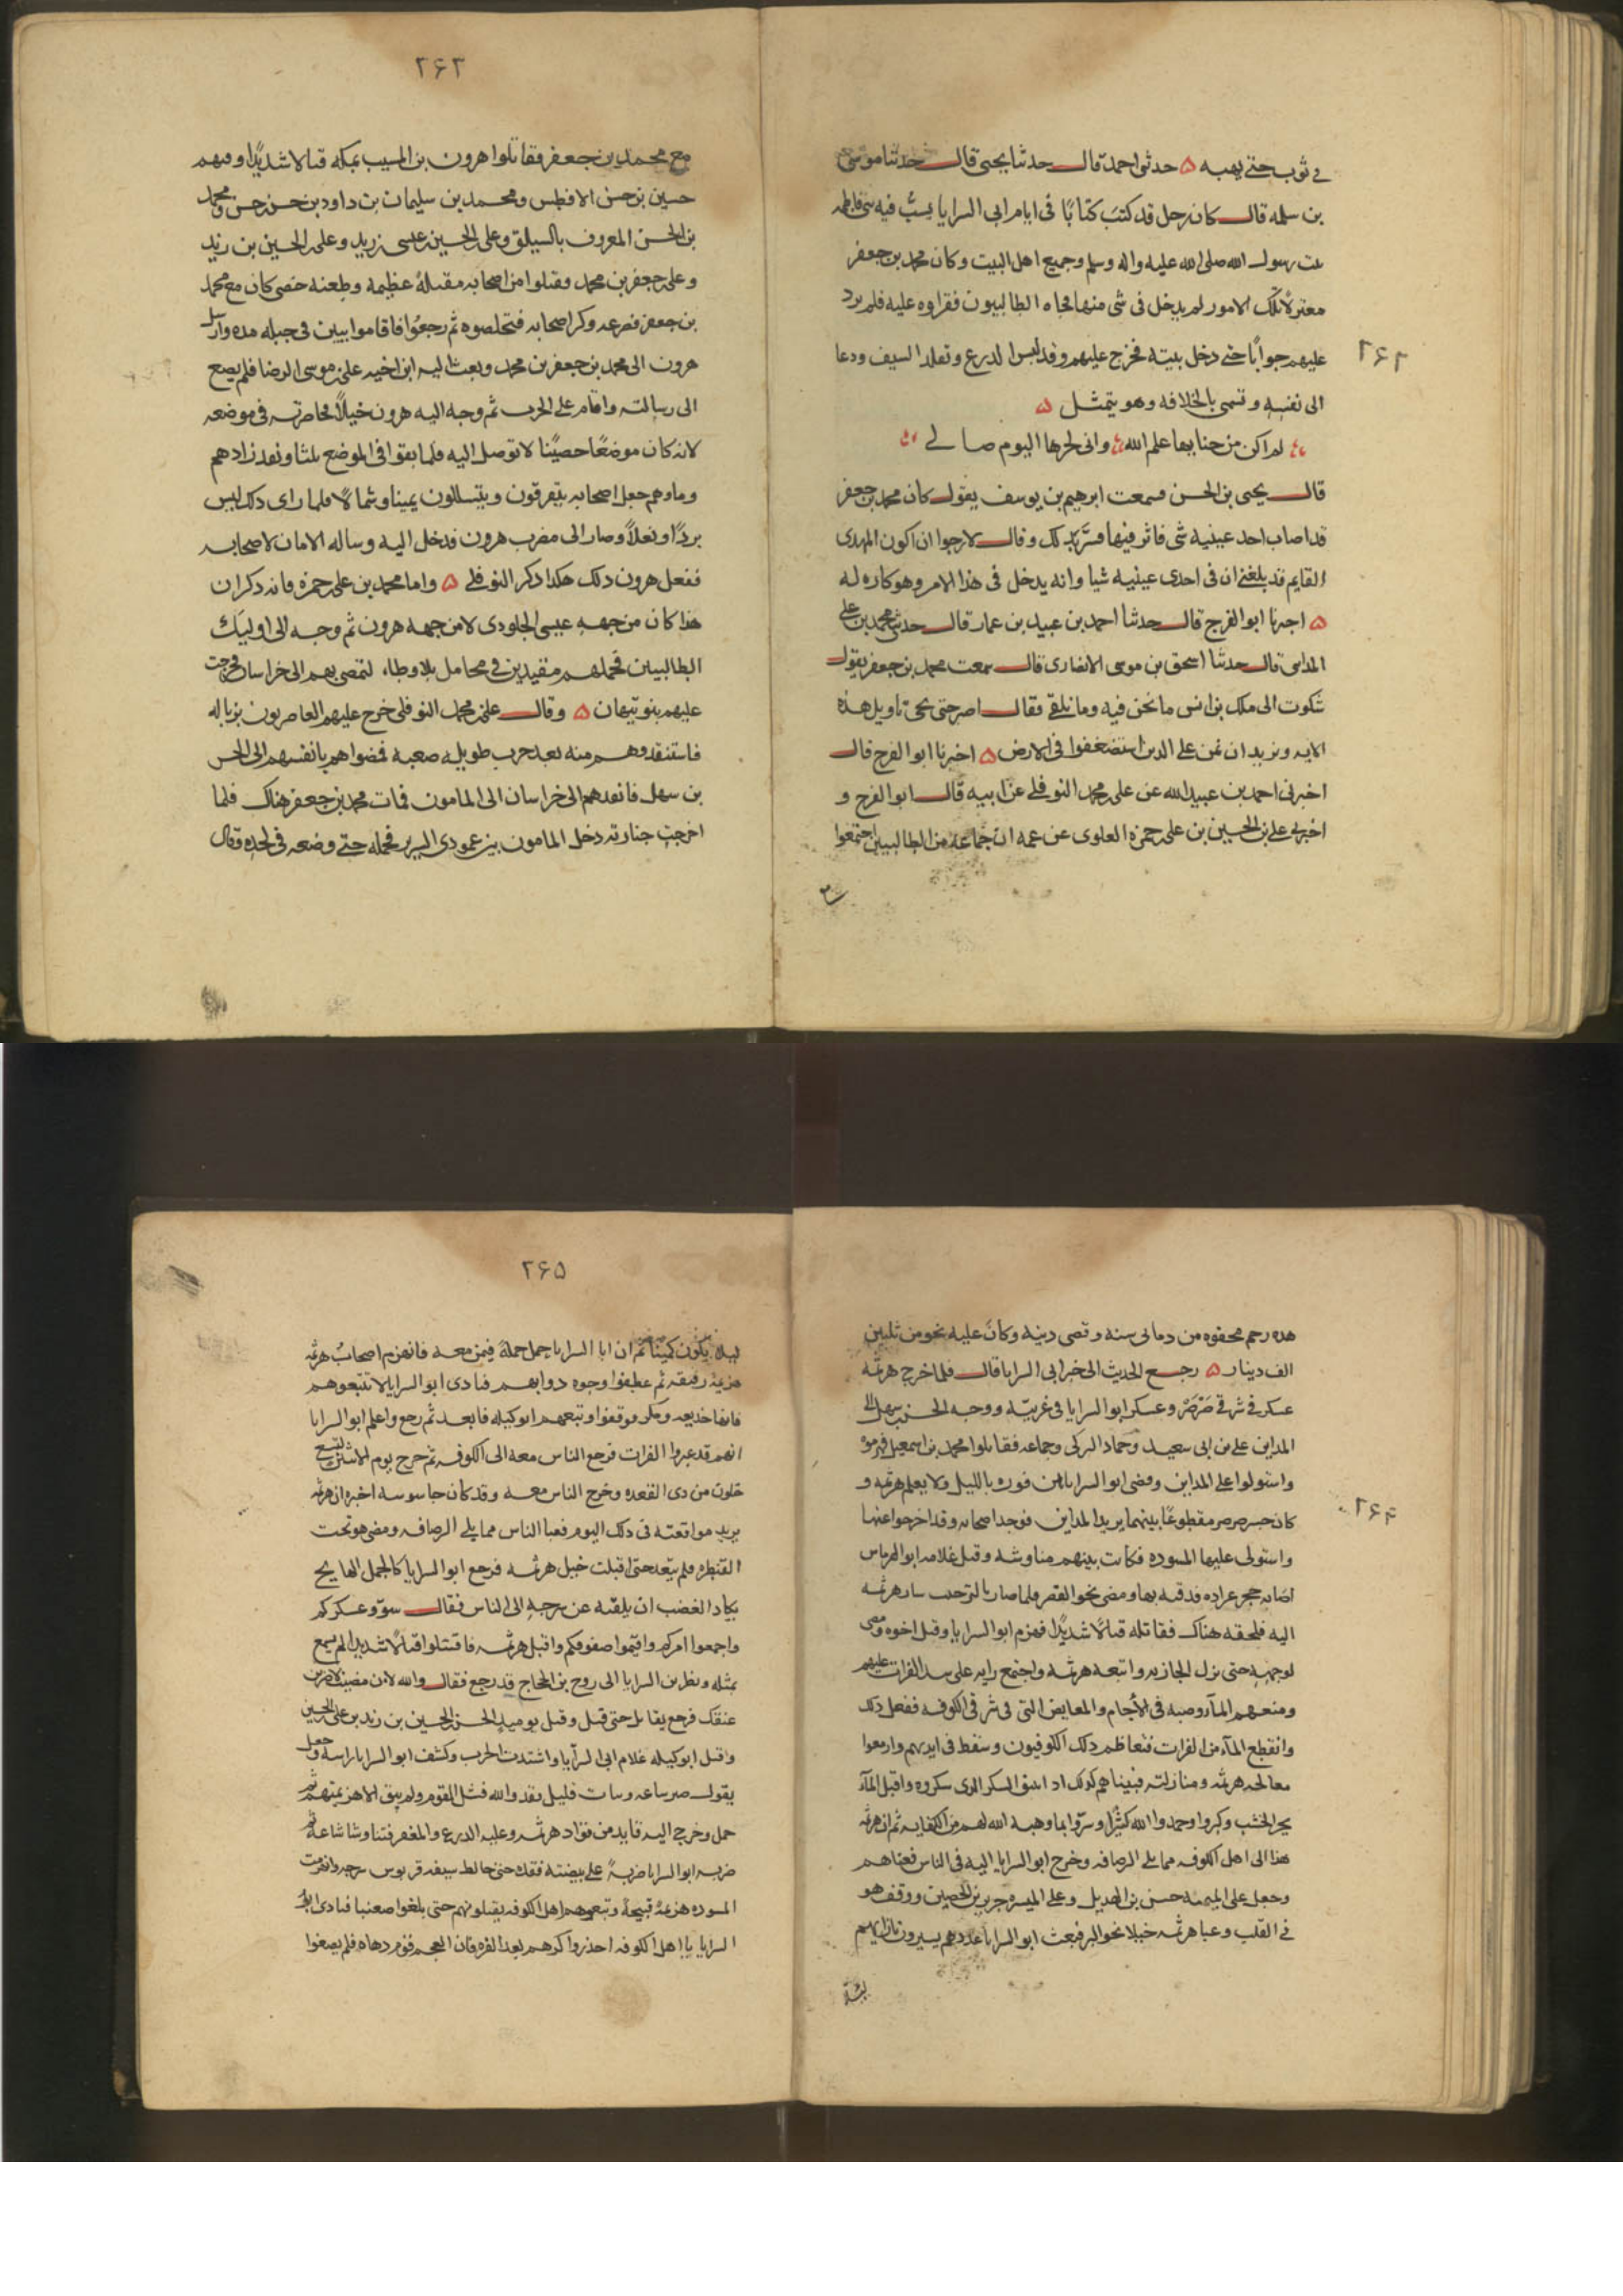 في ثوب حتى يهبه ۵ حدثني احمد قال حدثنا يحيى قال حدثنا موسى
بن سلمه قال كان رجل قد كتب كتابًا في ايام ابي السرايا يسبّ فيه فاطمه
بنت رسول الله صلى الله عليه واله وسلم وجميع اهل البيت وكان محمد بن جعفر
معتزلًا تلك الامور لم يدخل في شى منها فجاه الطالبيون فقراوه عليه فلم يرد
عليهم جوابًا حتى دخل بيته فخرج عليهم وقد لبس الدرع وتقلد السيف ودعا
۲۶۲
الى نفسه وتسمى بالخلافه وهو يتمثل ۵
لم اكن من جناتها علم الله وانى لحرها اليوم صالي
قال يحيى بن الحسن فسمعت ابرهيم بن يوسف يقول كان محمد بن جعفر
قد اصاب احد عينيه شى فاثر فيها فسرّ بذلك وقال لارجوا ان اكون المهدى
القايم قد بلغنى ان فى احدى عينيه شيا وانه يدخل فى هذا الامر وهو كاره له
۵ اخبرنا ابو الفرج قال حدثنا احمد بن عبيد بن عمار قال حدثنى محمد بن علي
المداينى قال حدثنا اسحق بن موسى الانصارى قال سمعت محمد بن جعفر يقول
شكوت الى ملك بن انس ما نحن فيه وما نلقى فقال اصبر حتى يجى تاويل هذه
الايه ونريد ان نمن على الذين استضعفوا فى الارض ۵ اخبرنا ابو الفرج قال
اخبرنى احمد بن عبيد الله عن على بن محمد النوفلي عن ابيه قال ابو الفرج و
اخبرني علي بن الحسين بن على بن حمزه العلوى عن عمه ان جماعه من الطالبيين اجتمعوا
۲۶۳
مع محمد بن جعفر فقاتلوا هرون بن المسيب بمكه قتالا شديدًا وفيهم
حسين بن حسن الافطس ومحمد بن سليمان بن داود بن حسن بن حسن ومحمد
بن الحسن المعروف بالسيلق وعلى بن الحسين بن عيسى بن زيد وعلى بن الحسين بن زيد
وعلى بن جعفر بن محمد وقتلوا من اصحابه مقتلة عظيمه وطعنه خصى كان مع محمد
بن جعفر فصرعه وكر اصحابه فتخلصوه ثم رجعوا فاقاموا بيين فى جبله مده وارسل
هرون الى محمد بن جعفر بن محمد وبعث اليه ابن اخيه على بن موسى الرضا فلم يصغ
الى رسالته واقام على الحرب ثم وجه اليه هرون خيلًا فحاصرته فى موضعه
لانه كان موضعًا حصينًا لا توصل اليه فلما بقوا فى الموضع ثلثا ونفد زادهم
وماوهم جعل اصحابه يتفرقون ويتسللون يمينا وشمالًا فلما راى ذلك لبس
بردًا ونعلًا وصار الى مضرب هرون فدخل اليه وساله الامان لاصحابه
ففعل هرون ذلك هكذا ذكر النوفلي ۵ واما محمد بن على بن حمزه فانه ذكر ان
هذا كان من جهه عيسى الجلودى لا من جهه هرون ثم وجه الى اوليك
الطالبيين فحملهم مقيدين في محامل بلا وطاء لتمضى بهم الى خراسان فخرجت
عليهم بنو نبهان ۵ وقال على بن محمد النوفلى خرج عليهم الغاضريون بزباله
فاستنقذوهم منه بعد حرب طويله صعبه فمضوا هم بانفسهم الى الحسن
بن سهل فانفذهم الى خراسان الى المامون فمات محمد بن جعفر هناك فلما
اخرجت جنازته دخل المامون بين عمودى السرير فحمله حتى وضعه فى لحده وقال
هذه رحم مجفوه من دمانى سنه وقضى دينه وكان عليه نحو من ثلثين
الف دينار ۵ رجع الحديث الى خبر ابى السرايا قال فلما خرج هرثمه
عسكر في شرقي صَرْصَرْ وعسكر ابو السرايا فى غربيّه ووجه الحسن بن سهل الى
المداين على بن ابى سعيد وحماد التركى وجماعه فقاتلوا محمد بن اسمعيل فهزموه
واستولوا على المداين ومضى ابو السرايا من فوره بالليل ولا يعلم هرثمه و
۲۶۴
كان جسر صرصر مقطوعًا بينهما يريد المداين فوجد اصحابه وقد اخرجوا عنها
واستولى عليها المسوده فكانت بينهم مناوشه وقتل غلامه ابو الهرماس
اصابه حجر عراده فدفنه بها ومضى نحو القصر فلما صار بالرحب سار هرثمه
اليه فلحقه هناك فقاتله قتالًا شديدًا فهزم ابو السرايا وقتل اخوه ومضى
لوجهه حتى نزل الجازيه واتبعه هرثمه واجتمع رايه على سد الفرات عليهم
ومنعهم المآ وصبه فى الآجام والمغايض التى فى شرقى الكوفه ففعل ذلك
وانقطع المآء من الفرات فتعاظم ذلك الكوفيون وسقط فى ايديهم وازمعوا
معالجه هرثمه ومنازلته فبيناهم كذلك اذ انبثق السكر الذى سكروه واقبل المآء
يجر الخشب وكبروا وحمدوا الله كثيرًا وسرّوا بما وهبه الله لهم من الكفايه ثم ان هرثمه
هذا الى اهل الكوفه مما يلي الرصافه وخرج ابو السرايا اليه فى الناس فعباهم
وجعل على الميمنه حسن بن الهذيل وعلى الميسره جرير بن الحصين ووقف هو
في القلب وعبا هرثمه خيلا نحو البر فبعث ابو السرايا عددهم يسيرون بازايهم
۲۶۵
ليلا يكون كمينا ثم ان ابا السرايا حمل حملة فيمن معه فانهزم اصحاب هرثمه
هزيمة رفيقه ثم عطفوا وجوه دوابهم فنادى ابو السرايا لا تتبعوهم
فانها خديعه ومكر فوقفوا وتبعهم ابو كيله فابعد ثم رجع واعلم ابو السرايا
انهم قد عبروا الفرات فرجع الناس معه الى الكوفه ثم خرج يوم الاثنين لتسع
خلون من ذى القعده وخرج الناس معه وقد كان جاسوسه اخبره ان هرثمه
يريد مواقعته فى ذلك اليوم فعبا الناس مما يلي الرصافه ومضى هو تحت
القنطره فلم يبعد حتى اقبلت خيل هرثمه فرجع ابو السرايا كالجمل الهايج
يكاد الغضب ان يلقيه عن سرجه الى الناس فقال سوّوا عسكركم
واجمعوا امركم واقيموا صفوفكم واقبل هرثمه فاقتتلوا قتالًا شديدا لم يسمع
بمثله ونظر ابو السرايا الى روح بن الحجاج قد رجع فقال والله لان مضيت لاضربن
عنقك فرجع يقاتل حتى قتل وقتل يوميذ الحسن بن الحسين بن زيد بن على بن الحسين
وقتل ابو كيله غلام ابى السرايا واشتدت الحرب وكشف ابو السرايا راسه وجعل
يقول صبر ساعه وثبات قليل فقد والله فشل القوم ولم يبق الا هزيمتهم ثم
حمل وخرج اليه قايد من قواد هرثمه وعليه الدرع والمغفر فتناوشا ساعة ثم
ضربه ابو السرايا ضربةً على بيضته فقده حتى خالط سيفه قربوس سرجه وانهزمت
المسوده هزيمة قبيحة وتبعوهم اهل الكوفه يقتلونهم حتى بلغوا صعنبا فنادى ابو
السرايا يا اهل الكوفه احذروا كرهم بعد الفره فان العجم قوم دهاه فلم يصغوا